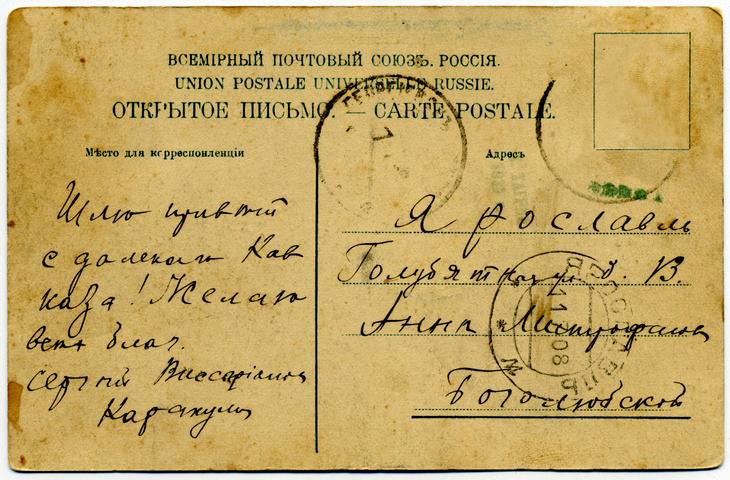 ВСЕМІРНЫЙ ПОЧТОВЫЙ СОЮЗЪ. РОССІЯ.
UNION POSTALE UNIVERSELLE RUSSIE.
ОТКРЫТОЕ ПИСЬМО. — CARTE POSTALE.
Мѣсто для корреспонденціи
Шлю привѣтъ
с далекаго Кав
каза! Желаю
всѣхъ благ.
Сергѣй Виссаріоновъ
Адресъ
Ярославль
д. В.
Анна Митрофановна
Боголюбской
11 08